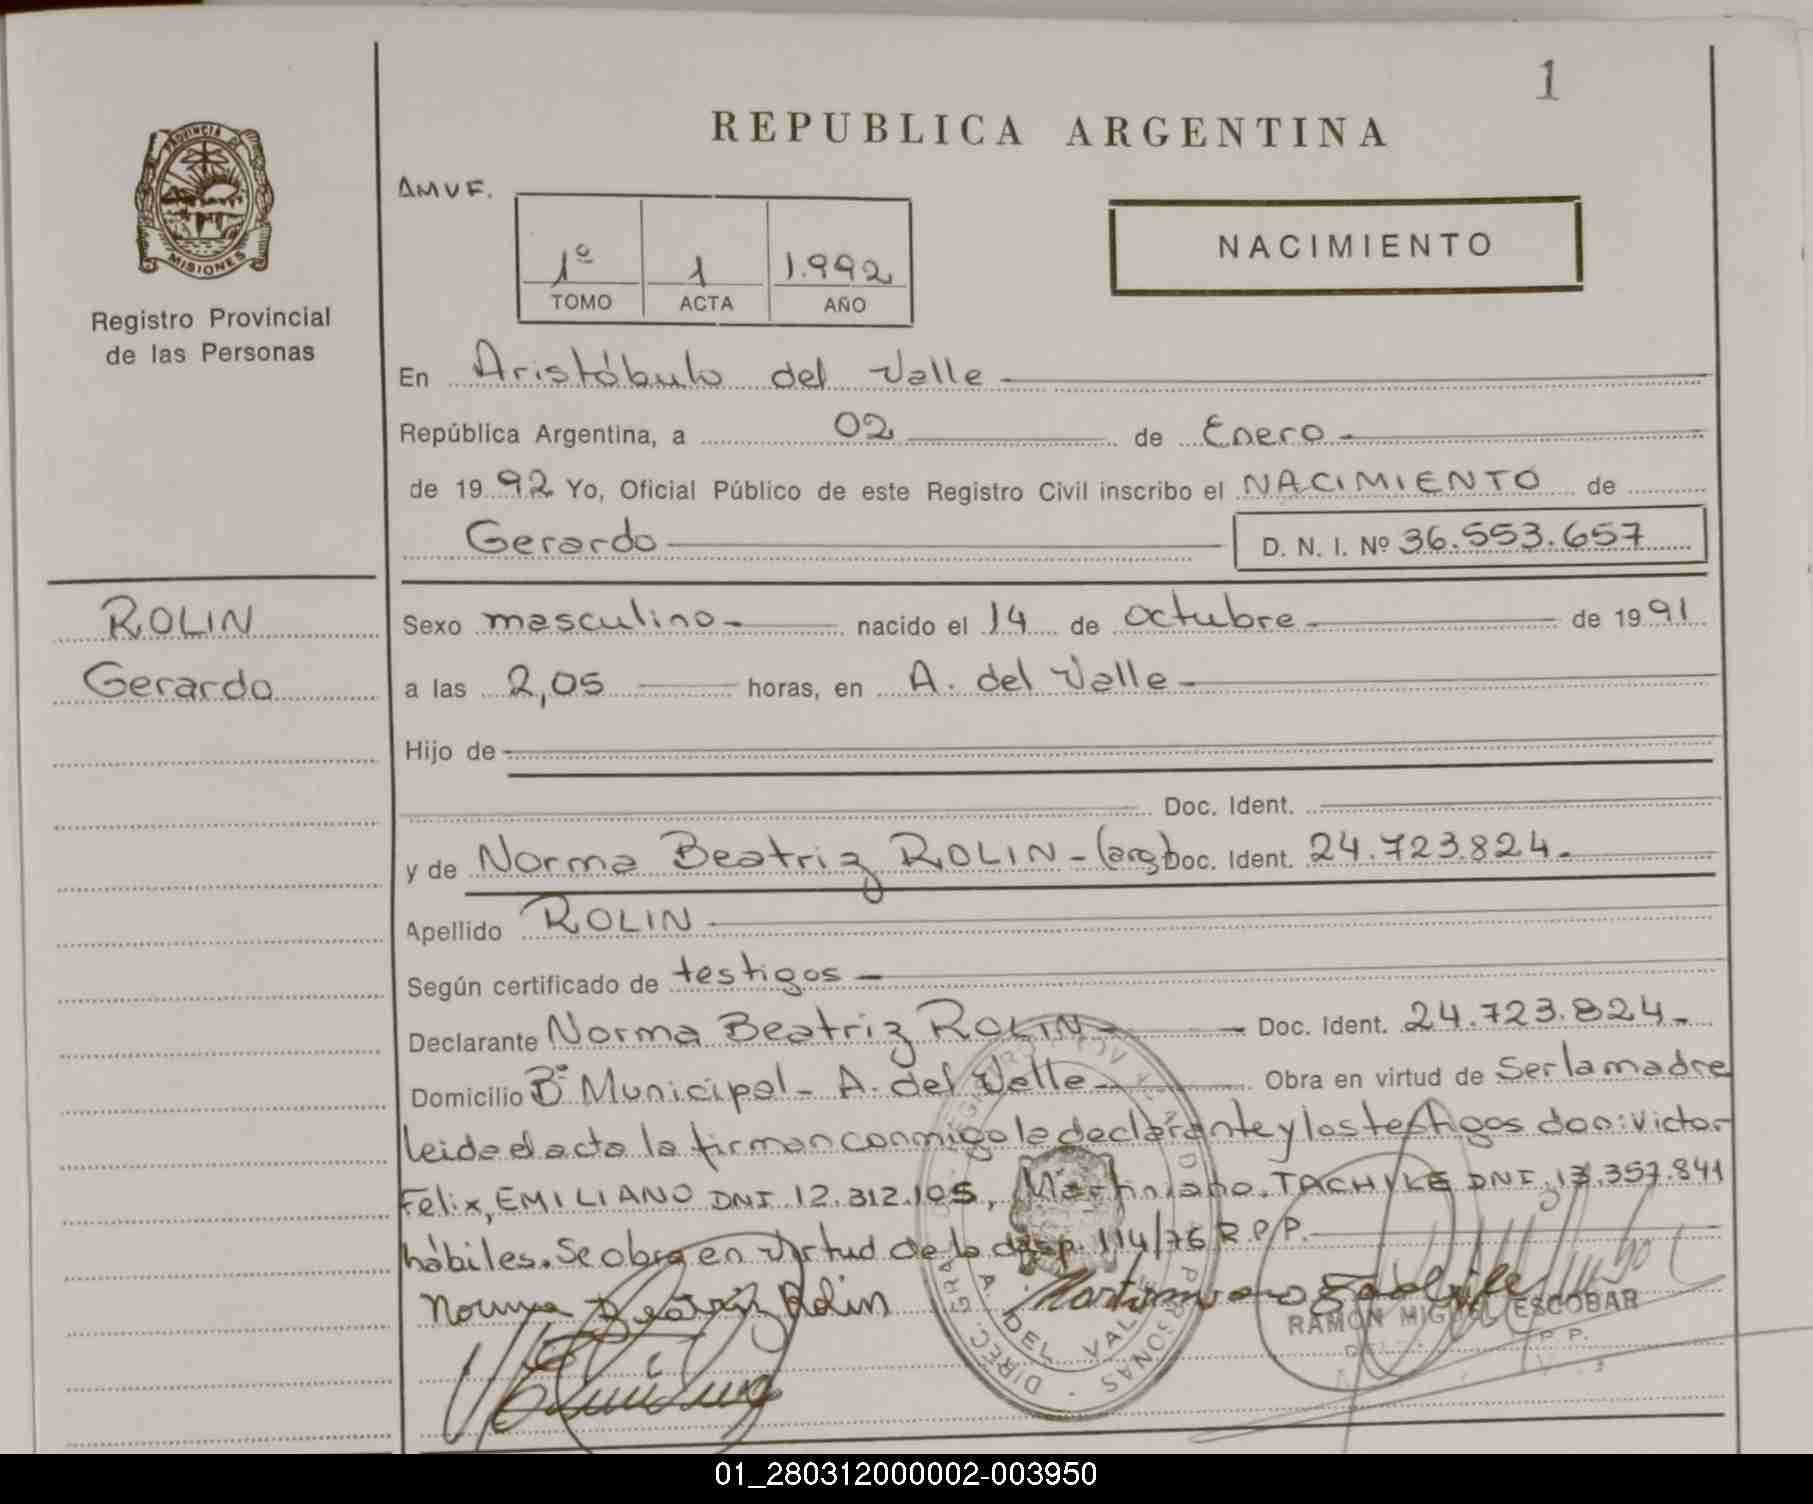 1
REPUBLICA ARGENTINA
PROVINCIA DE
MISIONES
Registro Provincial
de las Personas
AMVF.
1º 1 1.992
TOMO ACTA AÑO
NACIMIENTO
En Aristóbulo del Valle
República Argentina, a 02 de Enero
de 19 92 Yo, Oficial Público de este Registro Civil inscribo el NACIMIENTO de
Gerardo D. N. I. Nº 36.553.657
ROLIN
Gerardo
Sexo masculino nacido el 14 de octubre de 19 91
a las 2,05 horas, en A. del Valle
Hijo de
Doc. Ident.
y de Norma Beatriz ROLIN - (arg) Doc. Ident. 24.723.824.
Apellido ROLIN
Según certificado de testigos
Declarante Norma Beatriz ROLIN Doc. Ident. 24.723.824
Domicilio Bº Municipal - A. del Valle Obra en virtud de Ser la madre
leida el acta la firman conmigo la declarante y los testigos don: Victor
Felix, EMILIANO DNI. 12.312.105, Martiniano. TACHILE DNI. 13.357.841
hábiles. Se obra en virtud de la disp. 114/76 R.P.P.
Norma Beatriz Rolin
RAMON MIGUEL ESCOBAR
01_280312000002-003950